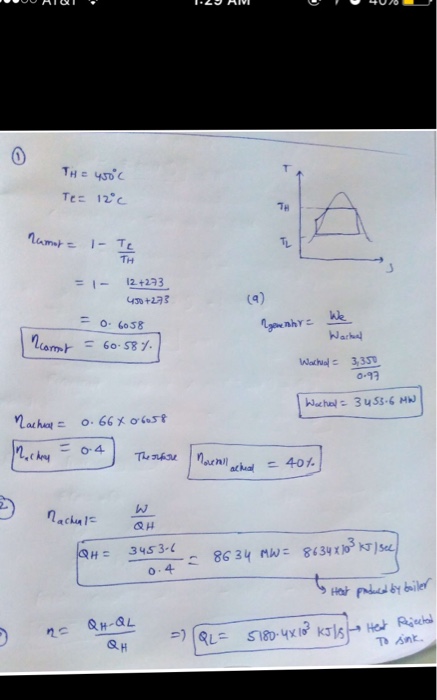 AT&T 1:29 AM 40%
①
TH = 450°C
TC = 12°C
ηcarnot = 1 - TC/TH
= 1 - 12+273/450+273
= 0.6058
ηcarnot = 60.58 %
T
TH
TL
S
(a)
ηgenerator = We/Wactual
Wactual = 3,350/0.97
Wactual = 3453.6 MW
ηactual = 0.66 X 0.6058
ηactual = 0.4 Therefore ηoverall actual = 40%
2
ηactual = W/QH
QH = 3453.6/0.4 = 8634 MW = 8634x10³ KJ/sec
Heat produced by boiler
η = QH-QL/QH => QL = 5180.4x10³ KJ/S → Heat Rejected To sink.